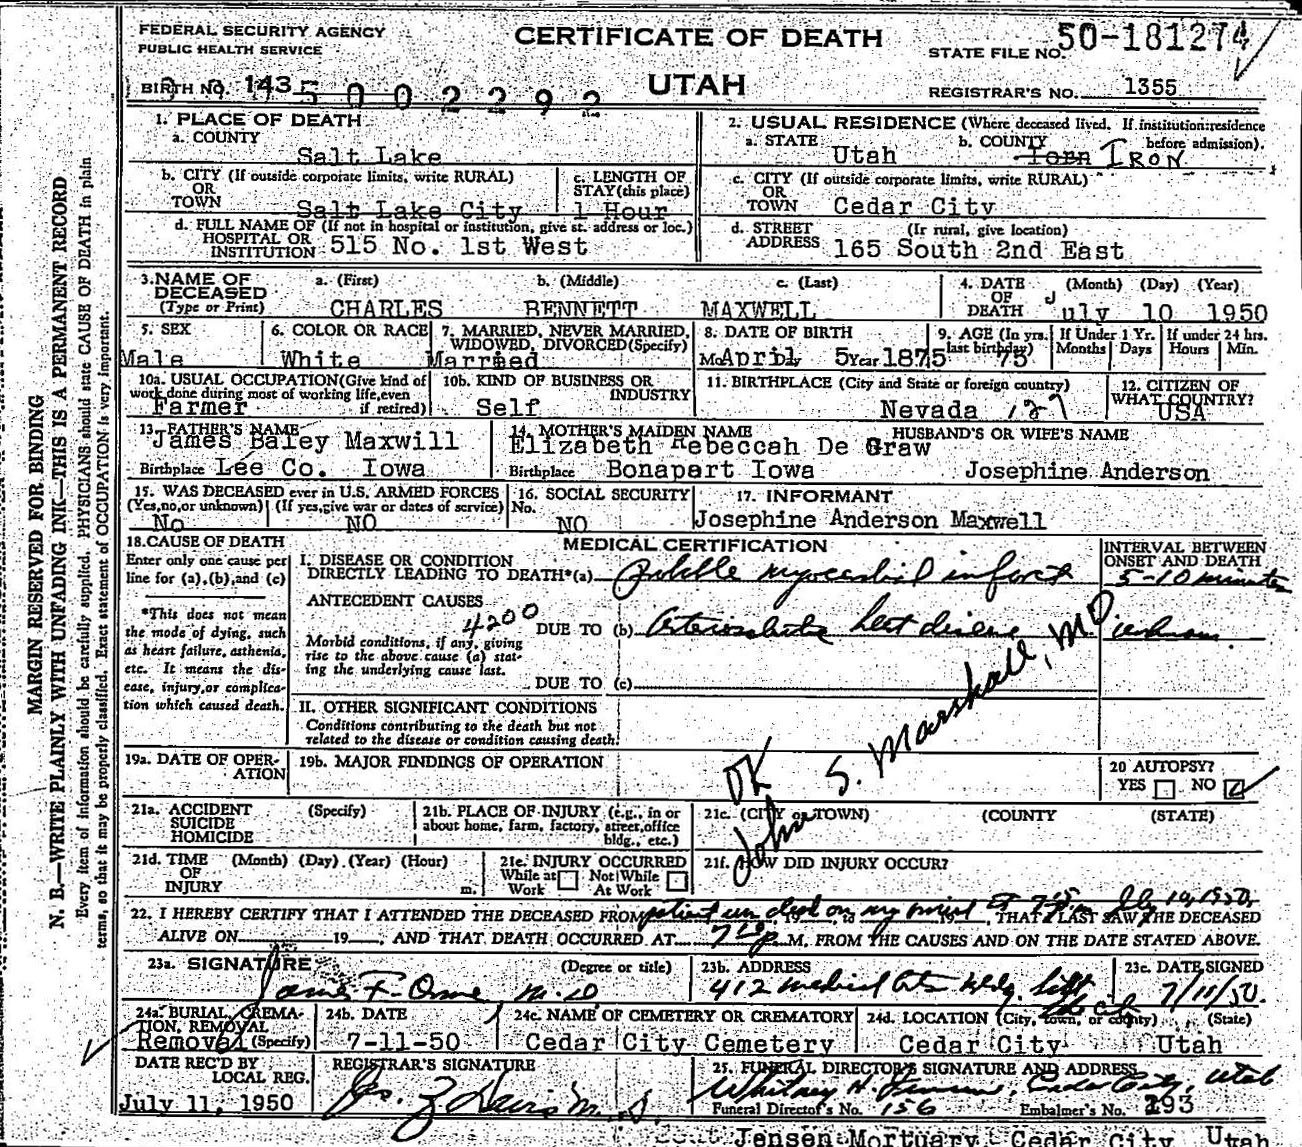 FEDERAL SECURITY AGENCY
PUBLIC HEALTH SERVICE
CERTIFICATE OF DEATH
UTAH
STATE FILE NO. 50-181274
REGISTRAR'S NO. 1355
BIRTH NO. 143 5002292
MARGIN RESERVED FOR BINDING
N. B.—WRITE PLAINLY WITH UNFADING INK—THIS IS A PERMANENT RECORD
Every item of information should be carefully supplied. PHYSICIANS should state CAUSE OF DEATH in plain
terms, so that it may be properly classified. Exact statement of OCCUPATION is very important.
1. PLACE OF DEATH
a. COUNTY
Salt Lake
b. CITY (If outside corporate limits, write RURAL)
OR
TOWN Salt Lake City
c. LENGTH OF
STAY (this place)
1 Hour
d. FULL NAME OF (If not in hospital or institution, give st. address or loc.)
HOSPITAL OR
INSTITUTION 515 No. 1st West
2. USUAL RESIDENCE (Where deceased lived. If institution:residence
before admission).
a. STATE Utah b. COUNTY IRON
c. CITY (If outside corporate limits, write RURAL)
OR
TOWN Cedar City
d. STREET (If rural, give location)
ADDRESS 165 South 2nd East
3. NAME OF
DECEASED
(Type or Print)
a. (First) b. (Middle) c. (Last)
CHARLES BENNETT MAXWELL
4. DATE
OF
DEATH
(Month) (Day) (Year)
July 10 1950
5. SEX
Male
6. COLOR OR RACE
White
7. MARRIED, NEVER MARRIED,
WIDOWED, DIVORCED (Specify)
Married
8. DATE OF BIRTH
April 5 Year 1875
9. AGE (In yrs. last birthday) 75
If Under 1 Yr.
Months Days
If under 24 hrs.
Hours Min.
10a. USUAL OCCUPATION (Give kind of
work done during most of working life, even
if retired)
Farmer
10b. KIND OF BUSINESS OR
INDUSTRY
Self
11. BIRTHPLACE (City and State or foreign country)
Nevada 127
12. CITIZEN OF
WHAT COUNTRY?
USA
13. FATHER'S NAME
James Baley Maxwill
Birthplace Lee Co. Iowa
14. MOTHER'S MAIDEN NAME
Elizabeth Rebeccah De Graw
Birthplace Bonapart Iowa
HUSBAND'S OR WIFE'S NAME
Josephine Anderson
15. WAS DECEASED ever in U.S. ARMED FORCES
(Yes, no, or unknown) (If yes, give war or dates of service)
No NO
16. SOCIAL SECURITY
No.
NO
17. INFORMANT
Josephine Anderson Maxwell
18. CAUSE OF DEATH
Enter only one cause per
line for (a), (b), and (c)
*This does not mean
the mode of dying, such
as heart failure, asthenia,
etc. It means the dis-
ease, injury, or complica-
tion which caused death.
MEDICAL CERTIFICATION
I. DISEASE OR CONDITION
DIRECTLY LEADING TO DEATH*(a) probable myocardial infarct
INTERVAL BETWEEN
ONSET AND DEATH
5-10 minutes
ANTECEDENT CAUSES
4200
Morbid conditions, if any, giving
rise to the above cause (a) stat-
ing the underlying cause last.
DUE TO (b) arteriosclerotic heart disease unknown
DUE TO (c)
II. OTHER SIGNIFICANT CONDITIONS
Conditions contributing to the death but not
related to the disease or condition causing death.
OK
John S. Marshall, MD
19a. DATE OF OPER-
ATION
19b. MAJOR FINDINGS OF OPERATION
20 AUTOPSY?
YES NO
21a. ACCIDENT
SUICIDE
HOMICIDE
(Specify)
21b. PLACE OF INJURY (e.g., in or
about home, farm, factory, street, office
bldg., etc.)
21c. (CITY or TOWN) (COUNTY) (STATE)
21d. TIME
OF
INJURY
(Month) (Day) (Year) (Hour)
m.
21e. INJURY OCCURRED
While at Work Not While At Work
21f. HOW DID INJURY OCCUR?
22. I HEREBY CERTIFY THAT I ATTENDED THE DECEASED FROM patient was dead on my arrival at 7 45 pm July 10, 1950, THAT I LAST SAW THE DECEASED
ALIVE ON 19 , AND THAT DEATH OCCURRED AT P M. FROM THE CAUSES AND ON THE DATE STATED ABOVE.
23a. SIGNATURE (Degree or title)
James F. Orme M.D.
23b. ADDRESS
412 Medical Arts Bldg. Salt Lake City
23c. DATE SIGNED
7/11/50.
24a. BURIAL, CREMA-
TION, REMOVAL
Removal (Specify)
24b. DATE
7-11-50
24c. NAME OF CEMETERY OR CREMATORY
Cedar City Cemetery
24d. LOCATION (City, town, or county) (State)
Cedar City Utah
DATE REC'D BY
LOCAL REG.
July 11, 1950
REGISTRAR'S SIGNATURE
25. FUNERAL DIRECTOR'S SIGNATURE AND ADDRESS
Cedar City, Utah
Funeral Director's No. 156 Embalmer's No. 293
Jensen Mortuary - Cedar City Utah